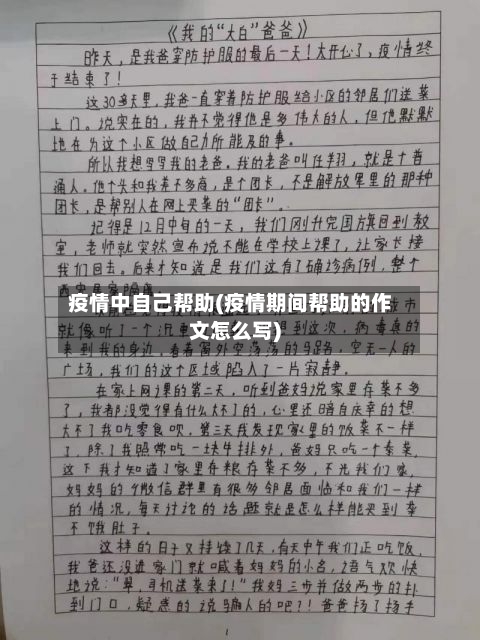 《我的“大白”爸爸》
昨天，是我爸穿防护服的最后一天！太开心了，疫情终
于结束了！
这30多天里，我爸一直穿着防护服给小区的邻居们送菜
上门。说实在的，我并不觉得他是多伟大的人，但他默默
地在为这个小区做自己力所能及的事。
所以我想写写我的老爸。我的老爸叫任羿，就是个普
通人。他个头和我差不多高，是个团长，不是解放军里的那种
团长，是帮别人在网上买菜的“团长”。
记得是12月中旬的一天，我们刚升完国旗回到教
室，老师就突然宣布说不能在学校上课了，让家长接
我们回去。后来才知道是我们这有了确诊病例，整个
疫情中自己帮助(疫情期间帮助的作
文怎么写)
就像听了一个
到这次，病毒真的
来到我的身边，看着窗外空荡荡的马路，空无一人的
广场，我们的这个区域陷入了一片寂静。
在家上网课的第二天，听到爸妈说家里存菜不多
了，我都没觉得有什么大不了的，心里还暗自庆幸的想
大不了我吃零食呗。第三天我发现家里的饭菜不一样
了，除了我照常吃一块牛排外，爸妈只吃一个素菜，
这下我才知道了家里存粮存菜不多，不光我们家，
妈妈的个微信群里有很多邻居面临和我们一样
的情况，每天讨论的话题就是怎么样能买到菜
不饿肚子。
这样的日子又持续了几天，有天中午我们正吃饭，
我爸还没进家门就喊着妈妈的小名，语气欢快
地说：“翠，司机送菜来了！”我妈三步并做两步的扑
到门口，疑惑的说骗人的吧？！爸爸扬了扬手
1